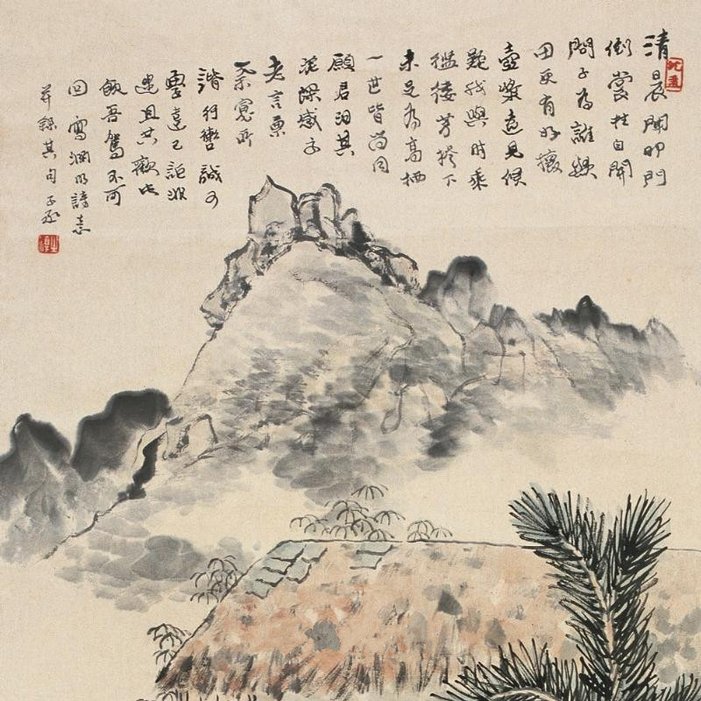 清晨聞叩門
倒裳往自開
問子為誰歟
田有好懷
壺漿遠見候
疑我與時乖
襤縷茅簷下
未足為高栖
一世皆尚同
願君汩其
泥深感父
老言稟
氣寡所
諧紆轡誠可
學違己詎非
迷且共歡此
飲吾駕不可
回 寫淵明詩意
并錄其句 子丞